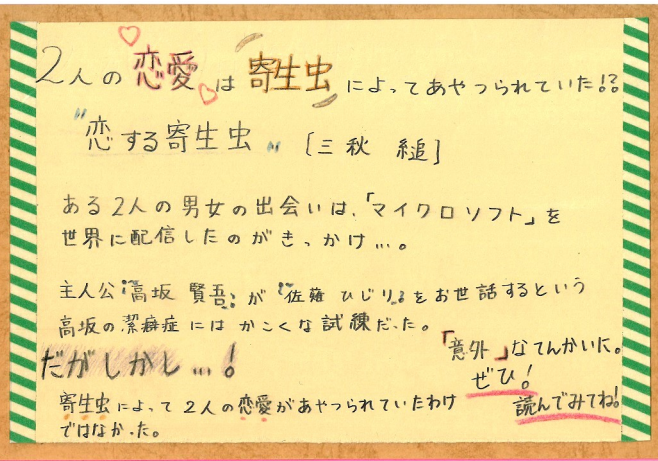 2人の恋愛は寄生虫によってあやつられていた!?
"恋する寄生虫" [三秋 縋]
ある2人の男女の出会いは、「マイクロソフト」を
世界に配信したのがきっかけ…。
主人公『高坂 賢吾』が『佐薙 ひじり』をお世話するという
高坂の潔癖症には かこくな試練だった。
だがしかし…!
寄生虫によって2人の恋愛があやつられていたわけ
ではなかった。
「意外」なてんかいに。
ぜひ!
読んでみてね!